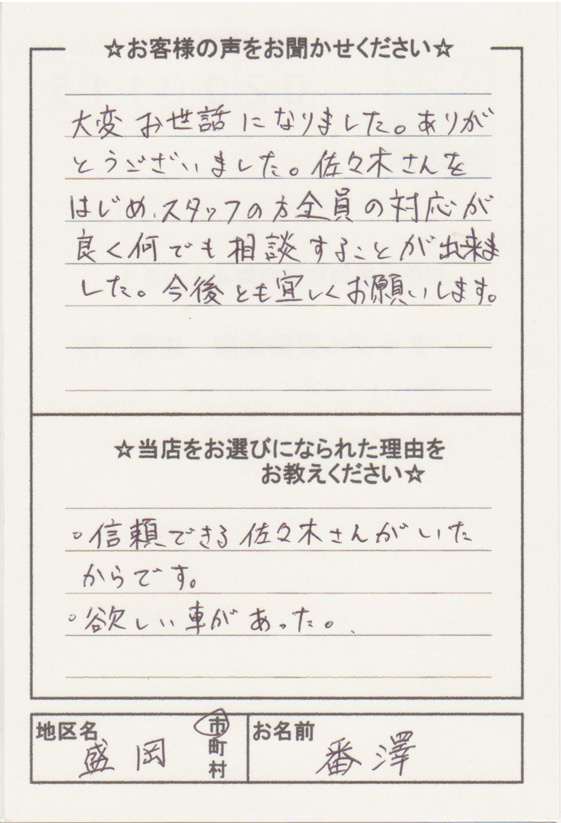 ☆お客様の声をお聞かせください☆
大変お世話になりました。ありが
とうございました。佐々木さんを
はじめ、スタッフの方全員の対応が
良く何でも相談することが出来ま
した。今後とも宜しくお願いします。
☆当店をお選びになられた理由を
お教えください☆
○信頼できる佐々木さんがいた
からです。
○欲しい車があった。
地区名 盛岡 市
町
村
お名前 番澤